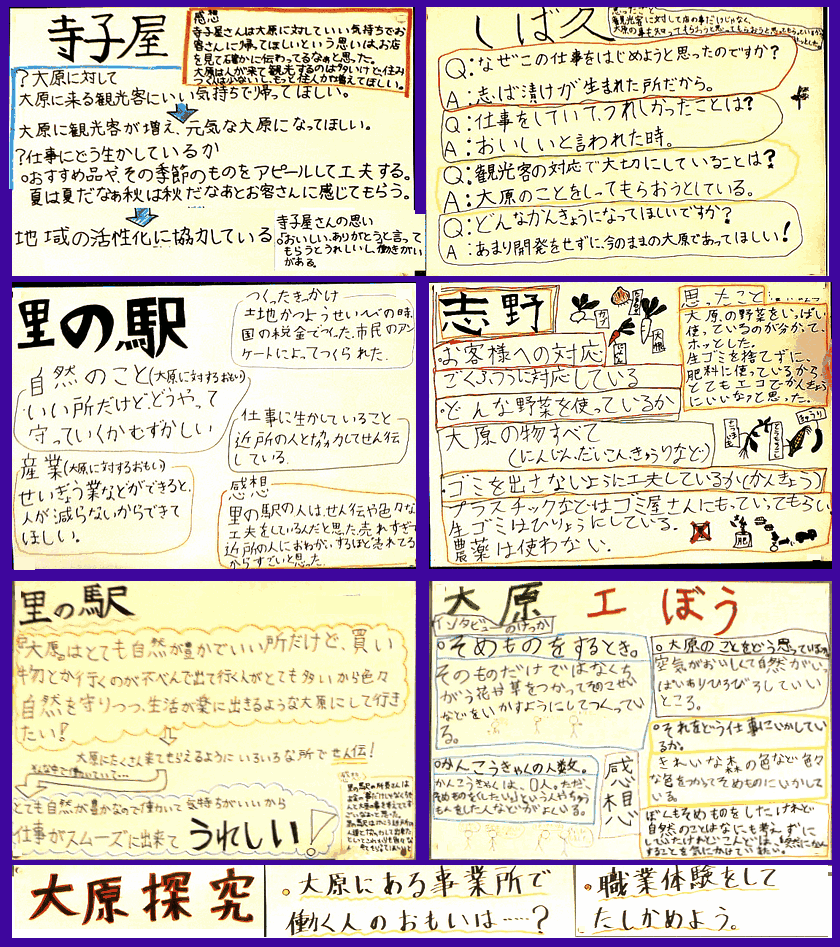 寺子屋
感想
寺子屋さんは大原に対していい気持ちでお
客さんに帰ってほしいという思いは、お店
を見て確かに伝わってるなぁと思った。
大原は人が来て観光するのは多いけど住み
?大原に対して
大原に来る観光客にいい気持ちで帰ってほしい。
大原に観光客が増え、元気な大原になってほしい。
?仕事にどう生かしているか
おすすめ品や、その季節のものをアピールして工夫する。
夏は夏だなぁ秋は秋だなぁとお客さんに感じてもらう。
地域の活性化に協力している
寺子屋さんの思い
おいしい、ありがとうと言って
もらうとうれしいし、働きがい
がある。
しば久
Q:なぜこの仕事をはじめようと思ったのですか?
A:志ば漬けが生まれた所だから。
Q:仕事をしていて、うれしかったことは?
A:おいしいと言われた時。
Q:観光客の対応で大切にしていることは?
A:大原のことをしってもらおうとしている。
Q:どんなかんきょうになってほしいですか?
A:あまり開発をせずに、今のままの大原であってほしい!
里の駅
つくったきっかけ
土地かつようせいびの時、
国の税金でつくった。市民のアン
ケートによってつくられた。
自然のこと(大原に対するおもい)
いい所だけど、どうやって
守っていくかむずかしい
仕事に生かしていること
近所の人と協力してせん伝
している。
産業(大原に対するおもい)
せいぎょう業などができると、
人が減らないからできて
ほしい。
感想
里の駅の人は、せん伝や色々な
工夫をしているんだと思った。売れすぎて
近所の人におわが、するほど売れてる
からすごいと思った。
志野
カブ
大根
思ったこと
大原の野菜をいっぱい
使っているのが分かって、
ホッとした。
生ゴミを捨てずに、
肥料に使っているから、
とてもエコでかんきょう
にいいなっと思った。
・お客様への対応
ごくふつうに対応している
・どんな野菜を使っているか
大原の物すべて
(にんじん、だいこん、きゅうりなど)
きゅうり
・ゴミを出さないように工夫しているか(かんきょう)
プラスチックなどはゴミ屋さんにもっていってもらい
生ゴミはひりょうにしている。
農薬は使わない。
肥
里の駅
大原はとても自然が豊かでいい所だけど、買い
物とか行くのが不べんで出て行く人がとても多いから色々
自然を守りつつ、生活が楽に出きるような大原にして行き
たい!
大原にたくさん来てもらえるようにいろいろな所でせん伝!
そんな中で働いていて…
とても自然が豊かなので働いて気持ちがいいから
仕事がスムーズに出来てうれしい!
大原工ぼう
インタビューのけっか
・そめものをするとき。
そのものだけではなくち
がう花や草をつかってそのこせい
などをいかすようにしてつくってい
る。
・かんこうきゃくの人数。
かんこうきゃくは、0人。ただ、
感想
・大原のことをどう思っているか
空気がおいしくて自然がいっ
ぱいありひろびろしていい
ところ。
・それをどう仕事にいかしてい
るか。
きれいな森の色など色々
な色をつかってそめものにいかしてい
る。
ぼくもそめものをしたけれど
自然のことはなにも考えずに
大原探究
・大原にある事業所で
働く人のおもいは……?
・職業体験をして
たしかめよう。